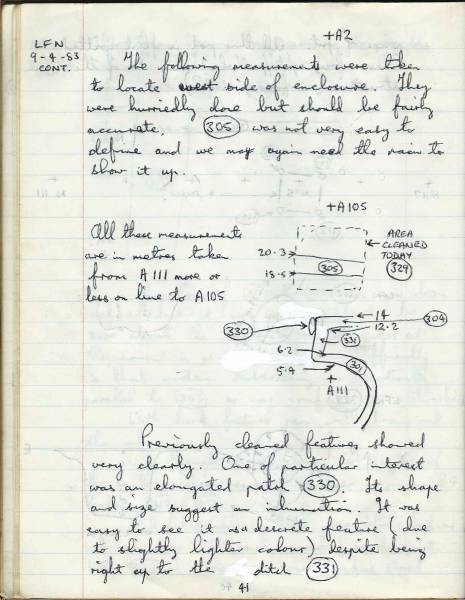 +A2
LFN
9-4-83
CONT.
The following measurements were taken
to locate west side of enclosure. They
were hurriedly done but should be fairly
accurate. 305 was not very easy to
define and we may again need the rain to
show it up.
+A105
All these measurements
are in metres taken
from A111 more or
less on line to A105
AREA
CLEANED
TODAY
329
20.3
18.5
305
14
304
12.2
330
331
6.2
301
5.4
+
A111
Previously cleaned features showed
very clearly. One of particular interest
was an elongated patch 330. Its shape
and size suggest an inhumation. It was
easy to see it as a discrete feature (due
to slightly lighter colour) despite being
right up to the ditch 331
41